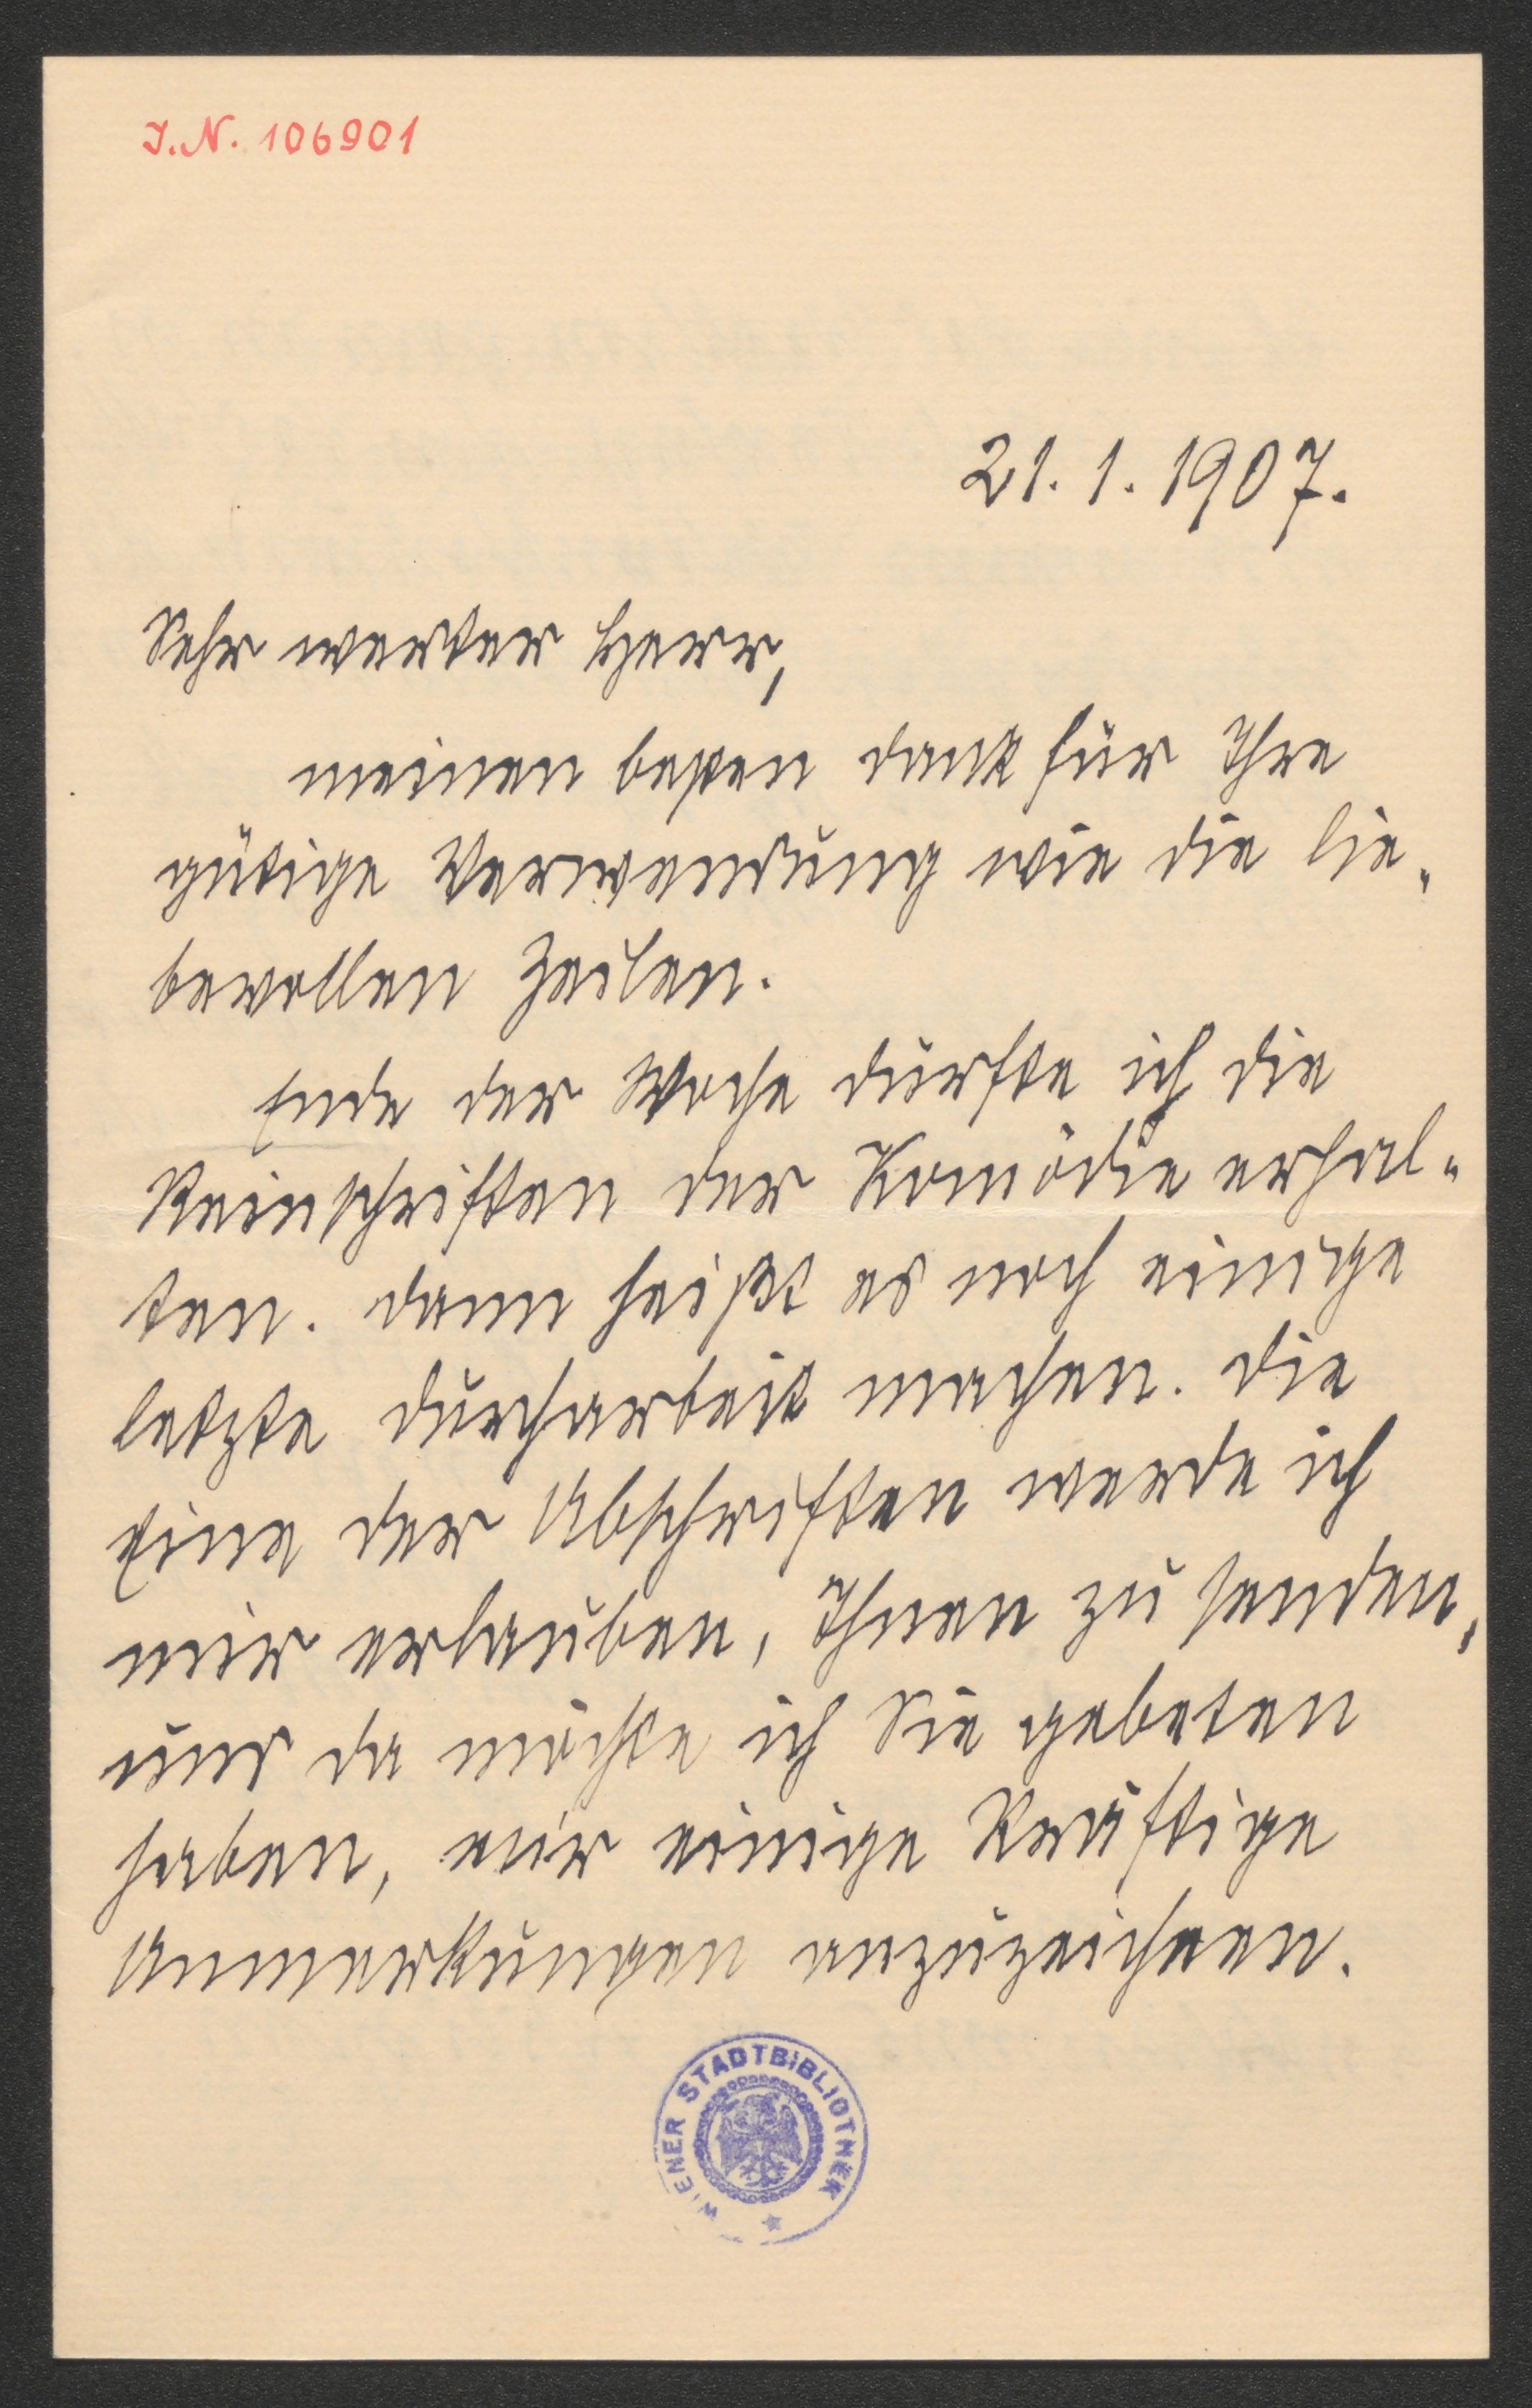 J.N. 106901
21. 1. 1907.
Sehr werter Herr,
meinen besten dank für Ihre
gütige Verwendung wie die lie-
bevollen Zeilen.
Ende der Woche dürfte ich die
Reinschriften der Komödie erhal-
ten. dann heißt es noch einige
letzte durcharbeit machen. die
Eine der Abschriften werde ich
mir erlauben, Ihnen zu senden,
und da möchte ich Sie gebeten
haben, mir einige kräftige
Anmerkungen anzuzeichnen.
WIENER STADTBIBLIOTHEK